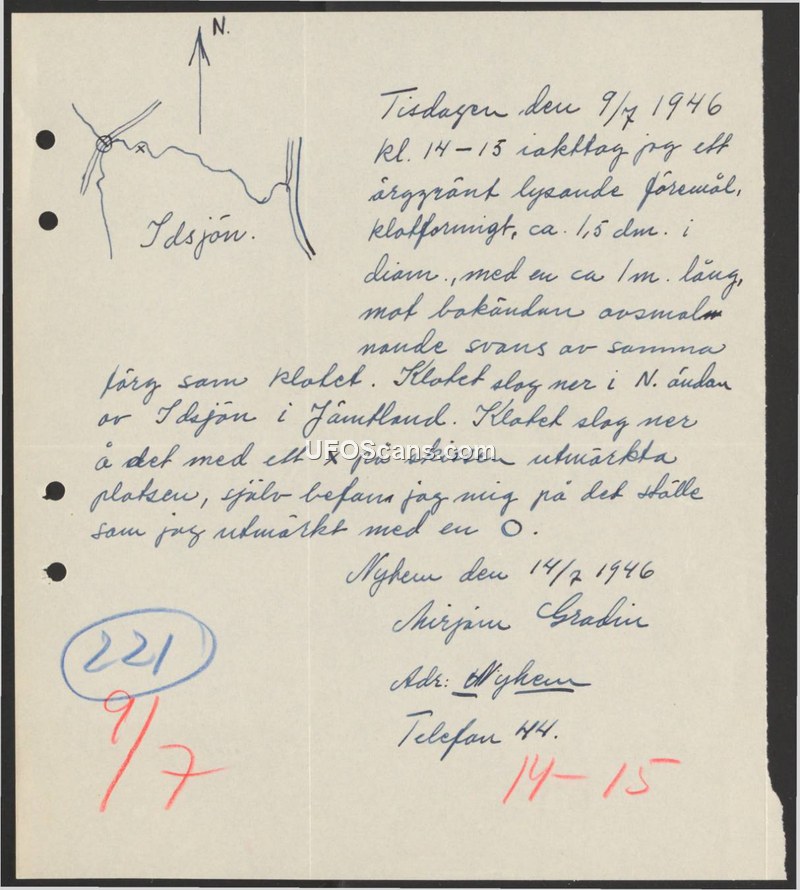 N.
Idsjön.
Tisdagen den 9/7 1946
kl. 14-15 iakttog jag ett
ärggrönt lysande föremål,
klotformigt, ca. 1,5 dm. i
diam., med en ca 1 m. lång,
mot bakändan avsmal-
nande svans av samma
färg som klotet. Klotet slog ner i N. ändan
av Idsjön i Jämtland. Klotet slog ner
å det med ett x på skissen utmärkta
platsen, själv befann jag mig på det ställe
som jag utmärkt med en O.
Nyhem den 14/7 1946
Mirjam Gradin
Adr: Nyhem
Telefon 44.
221
9/7
14-15
UFOScans.com